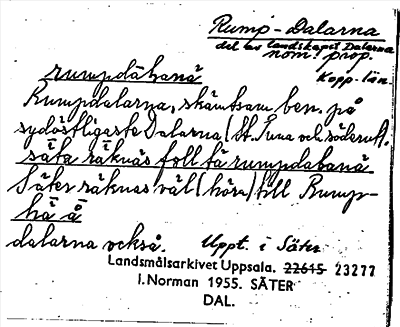 Rump-Dalarna
del av landskapet Dalarna
nom. prop.
Kopp. län.
rumpdāɫanā
Rumpdalarna, skämtsam ben. på
sydöstligaste Dalarna (St. Tuna och söderut).
sāta räknās foll tā rumpdalanā
Säter räknas väl (höra) till Rump-
hā å
dalarna också. Uppt. i Säter
Landsmålsarkivet Uppsala. 22615 23277
I. Norman 1955. SÄTER
DAL.